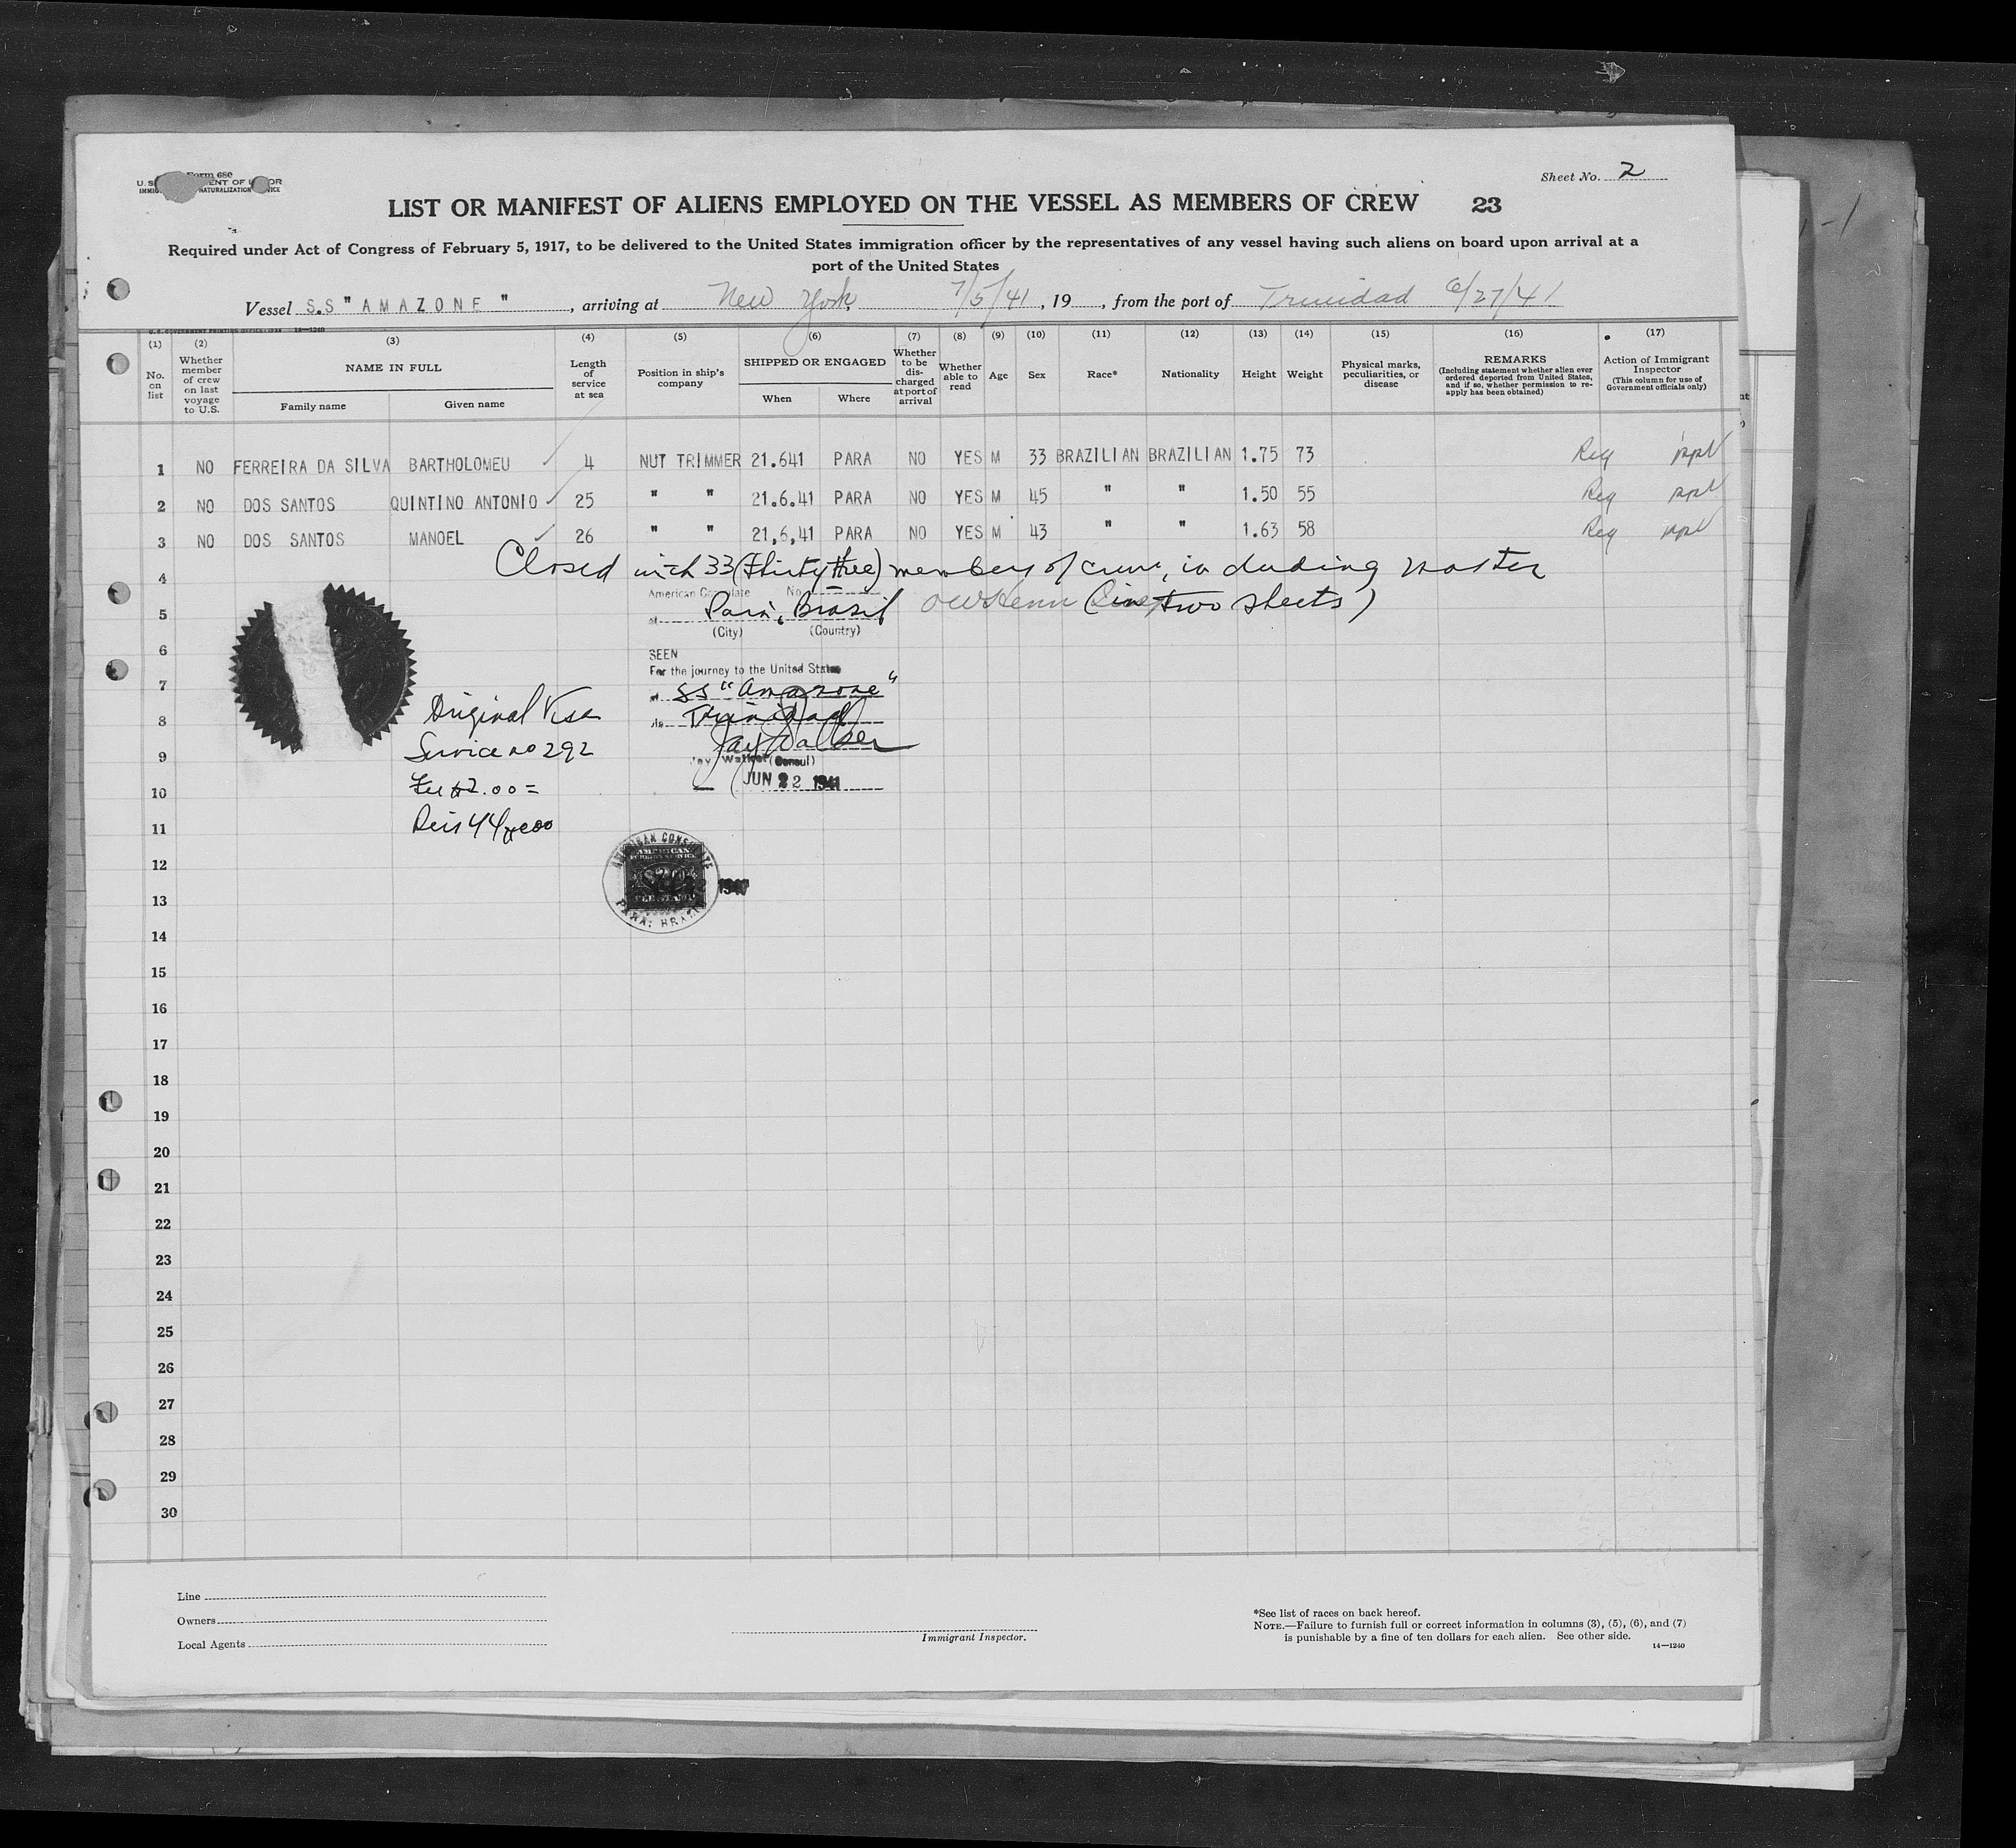 Form 680
Sheet No. 2
LIST OR MANIFEST OF ALIENS EMPLOYED ON THE VESSEL AS MEMBERS OF CREW 23
Required under Act of Congress of February 5, 1917, to be delivered to the United States immigration officer by the representatives of any vessel having such aliens on board upon arrival at a
port of the United States
Vessel S.S "AMAZONE", arriving at New York, 7/5/41, 19, from the port of Trinidad 6/27/41
(1) (2) (3) (4) (5) (6) (7) (8) (9) (10) (11) (12) (13) (14) (15) (16) (17)
No. on list
Whether member of crew on last voyage to U.S.
NAME IN FULL
Family name
Given name
Length of service at sea
Position in ship's company
SHIPPED OR ENGAGED
When
Where
Whether to be discharged at port of arrival
Whether able to read
Age
Sex
Race*
Nationality
Height
Weight
Physical marks, peculiarities, or disease
REMARKS
(Including statement whether alien ever ordered deported from United States, and if so, whether permission to reapply has been obtained)
Action of Immigrant Inspector
(This column for use of Government officials only)
1 NO FERREIRA DA SILVA BARTHOLOMEU 4 NUT TRIMMER 21.641 PARA NO YES M 33 BRAZILIAN BRAZILIAN 1.75 73 Reg
2 NO DOS SANTOS QUINTINO ANTONIO 25 " " 21.6.41 PARA NO YES M 45 " " 1.50 55 Reg
3 NO DOS SANTOS MANOEL 26 " " 21,6,41 PARA NO YES M 43 " " 1.63 58 Reg
4 Closed with 33 (thirty three) members of crew, including master
American Consulate No.
5 at Para, Brasil (two sheets)
(City) (Country)
6 SEEN
For the journey to the United States
7 SS "Amazone"
8 Original Visa Trinidad
9 Service no 292 Jay Walker
Jay Walker (Consul)
10 Fee $2.00 = JUN 22 1941
11
AMERICAN CONSULATE
AMERICAN
FOREIGN SERVICE
12
1941
13
PARA, BRAZIL
14
15
16
17
18
19
20
21
22
23
24
25
26
27
28
29
30
Line
Owners
Local Agents
Immigrant Inspector.
*See list of races on back hereof.
NOTE.—Failure to furnish full or correct information in columns (3), (5), (6), and (7)
is punishable by a fine of ten dollars for each alien. See other side.
14—1240